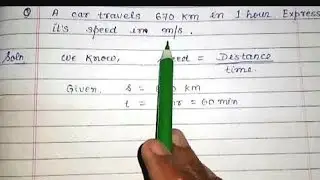 Q A car travels 670 km in 1 hour Express
it's speed in m/s.
Soln We know, = Distance
time.
Given, s = km
t = = 60 min